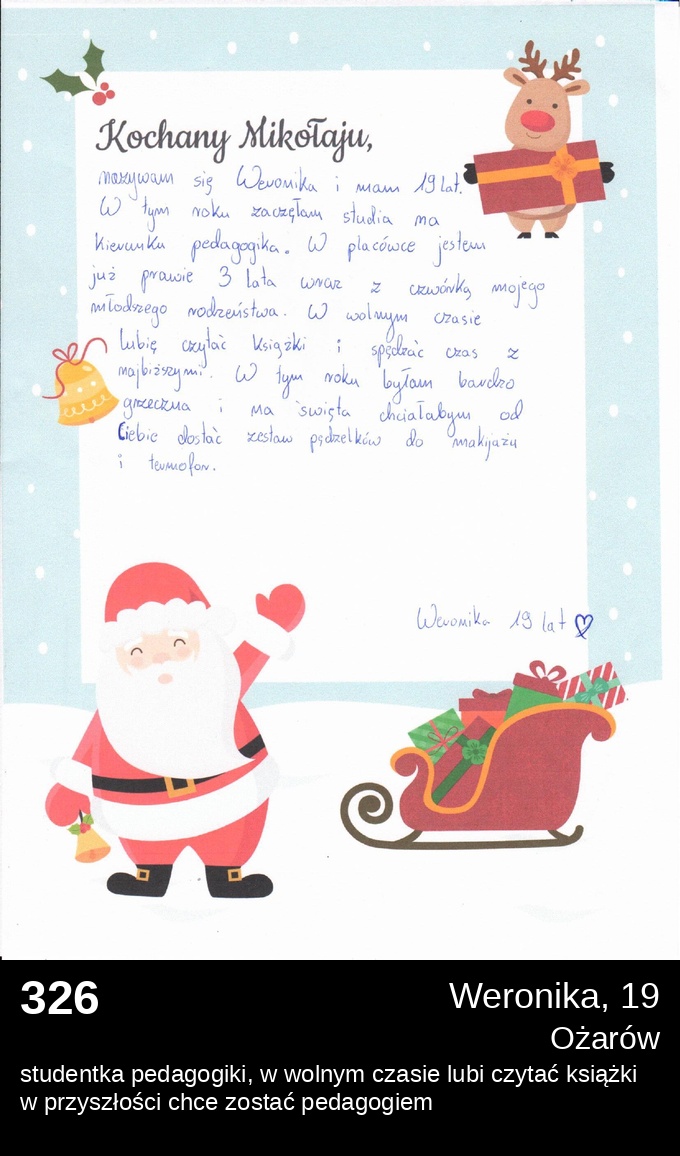 Kochany Mikołaju,
nazywam się Weronika i mam 19 lat.
W tym roku zaczęłam studia na
kierunku pedagogika. W placówce jestem
już prawie 3 lata wraz z czwórką mojego
młodszego rodzeństwa. W wolnym czasie
lubię czytać książki i spędzać czas z
najbliższymi. W tym roku byłam bardzo
grzeczna i na święta chciałabym od
Ciebie dostać zestaw pędzelków do makijażu
i termofor.
Weronika 19 lat
326
Weronika, 19
Ożarów
studentka pedagogiki, w wolnym czasie lubi czytać książki
w przyszłości chce zostać pedagogiem